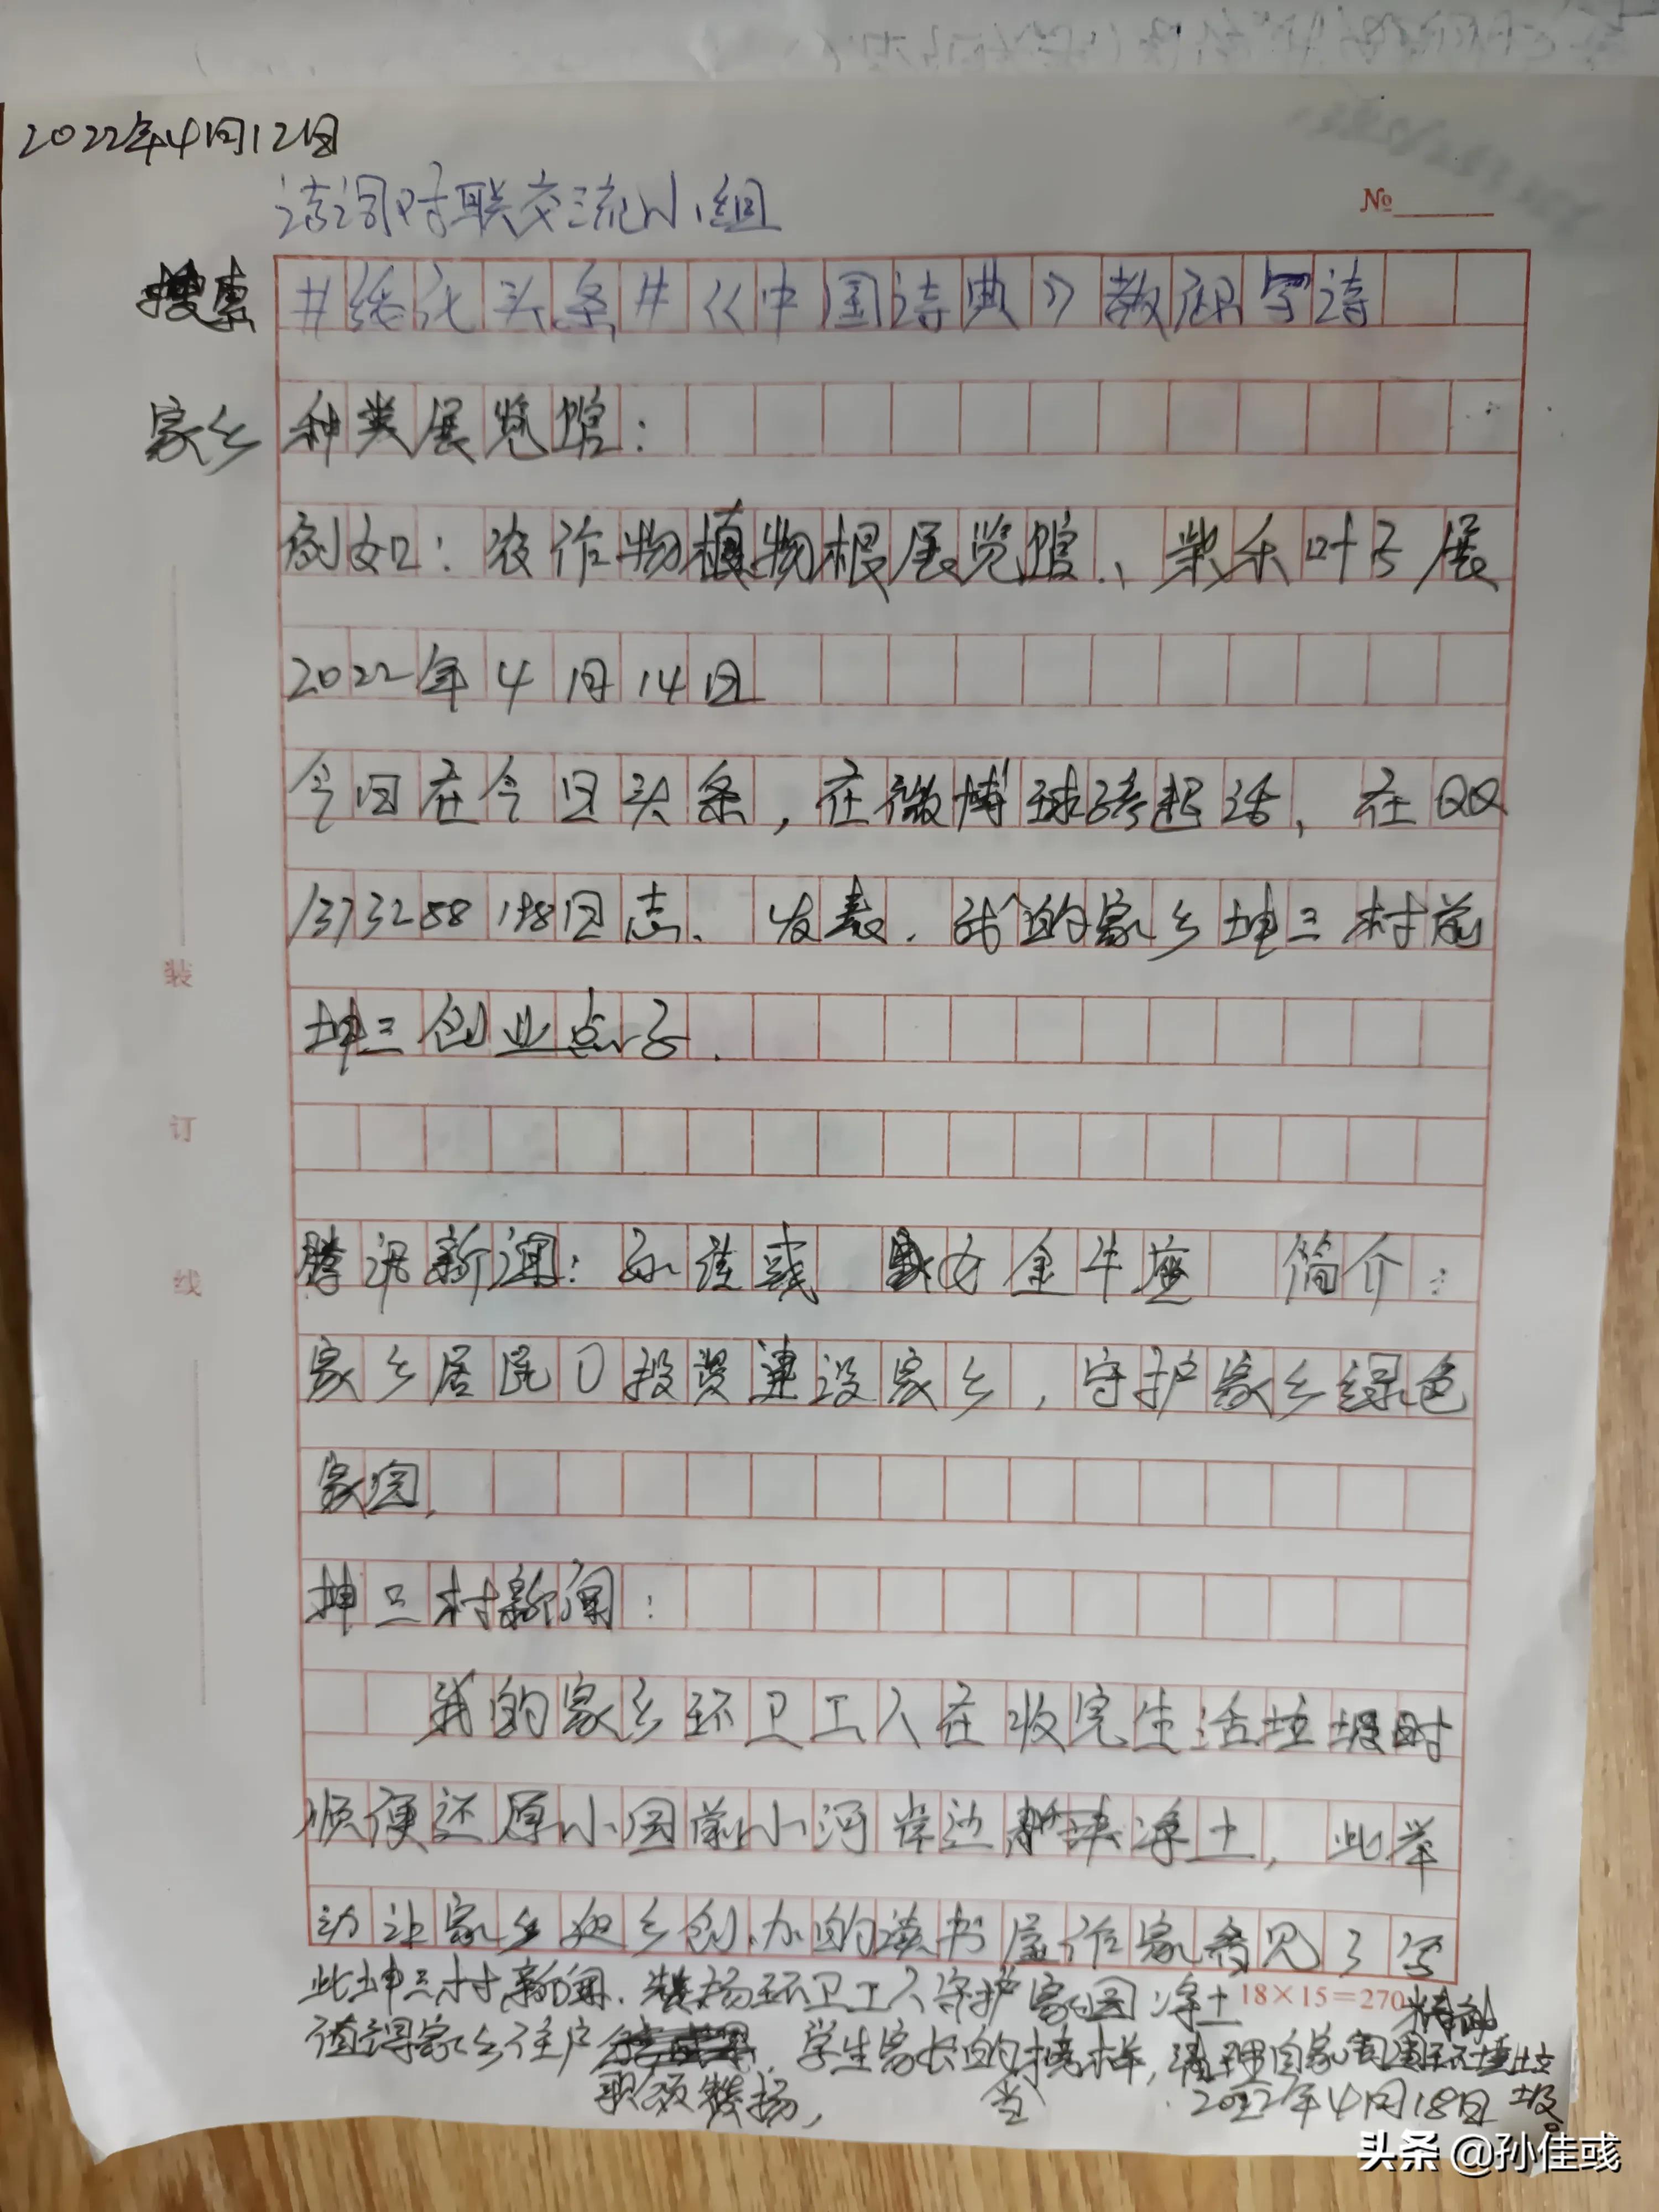 2022年4月12日
诗词对联交流小组
№
搜索 #绥化头条#《中国诗典》教你写诗
家乡 种类展览馆：
例如：农作物植物根展览馆、柴禾叶子展
2022年4月14日
今日在今日头条，在微博超话，在QQ
1373288198日志、发表．我的家乡坤三村前
坤三创业点子．
装
订
线
腾讯新闻：孙佳彧 女 金牛座 简介：
家乡居民投资建设家乡，守护家乡绿色
家园．
坤三村新闻：
我的家乡环卫工人在收完生活垃圾时
顺便还原小园前小河岸边净土，此举
动让家乡返乡创办的读书屋作家看见了写
此坤三村新闻．赞扬环卫工人守护家园净土精神
18×15=270
值得家乡住户 学生家长的榜样，清理自家周围环境垃
圾。
歌颂赞扬， 当 2022年4月18日
头条 @孙佳彧